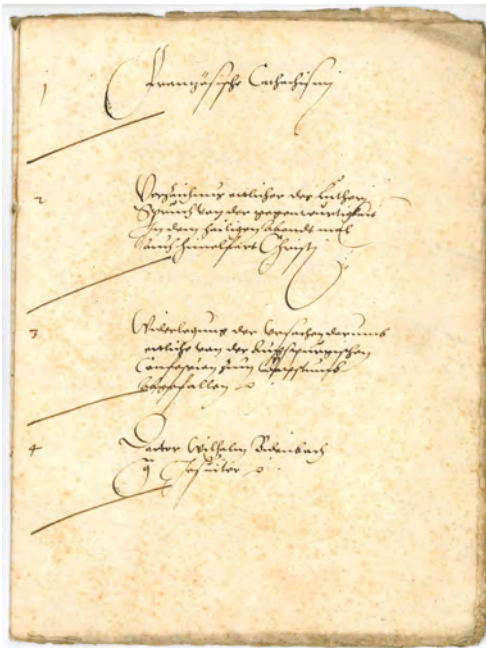 1 Französische Cathechismj
2 Verzaichnus ettlicher der luthern
Spruch von der gegenwurtigkeit
In dem heiligen Abendtmal
Auch himelfart Christj
3 Widerlegung der Ursachen darumb
ettliche von der Augspurgischen
Confession zum Bapstumb
abgefallen
4 Doctor Wilhalm Bidenbach
Jesuiter